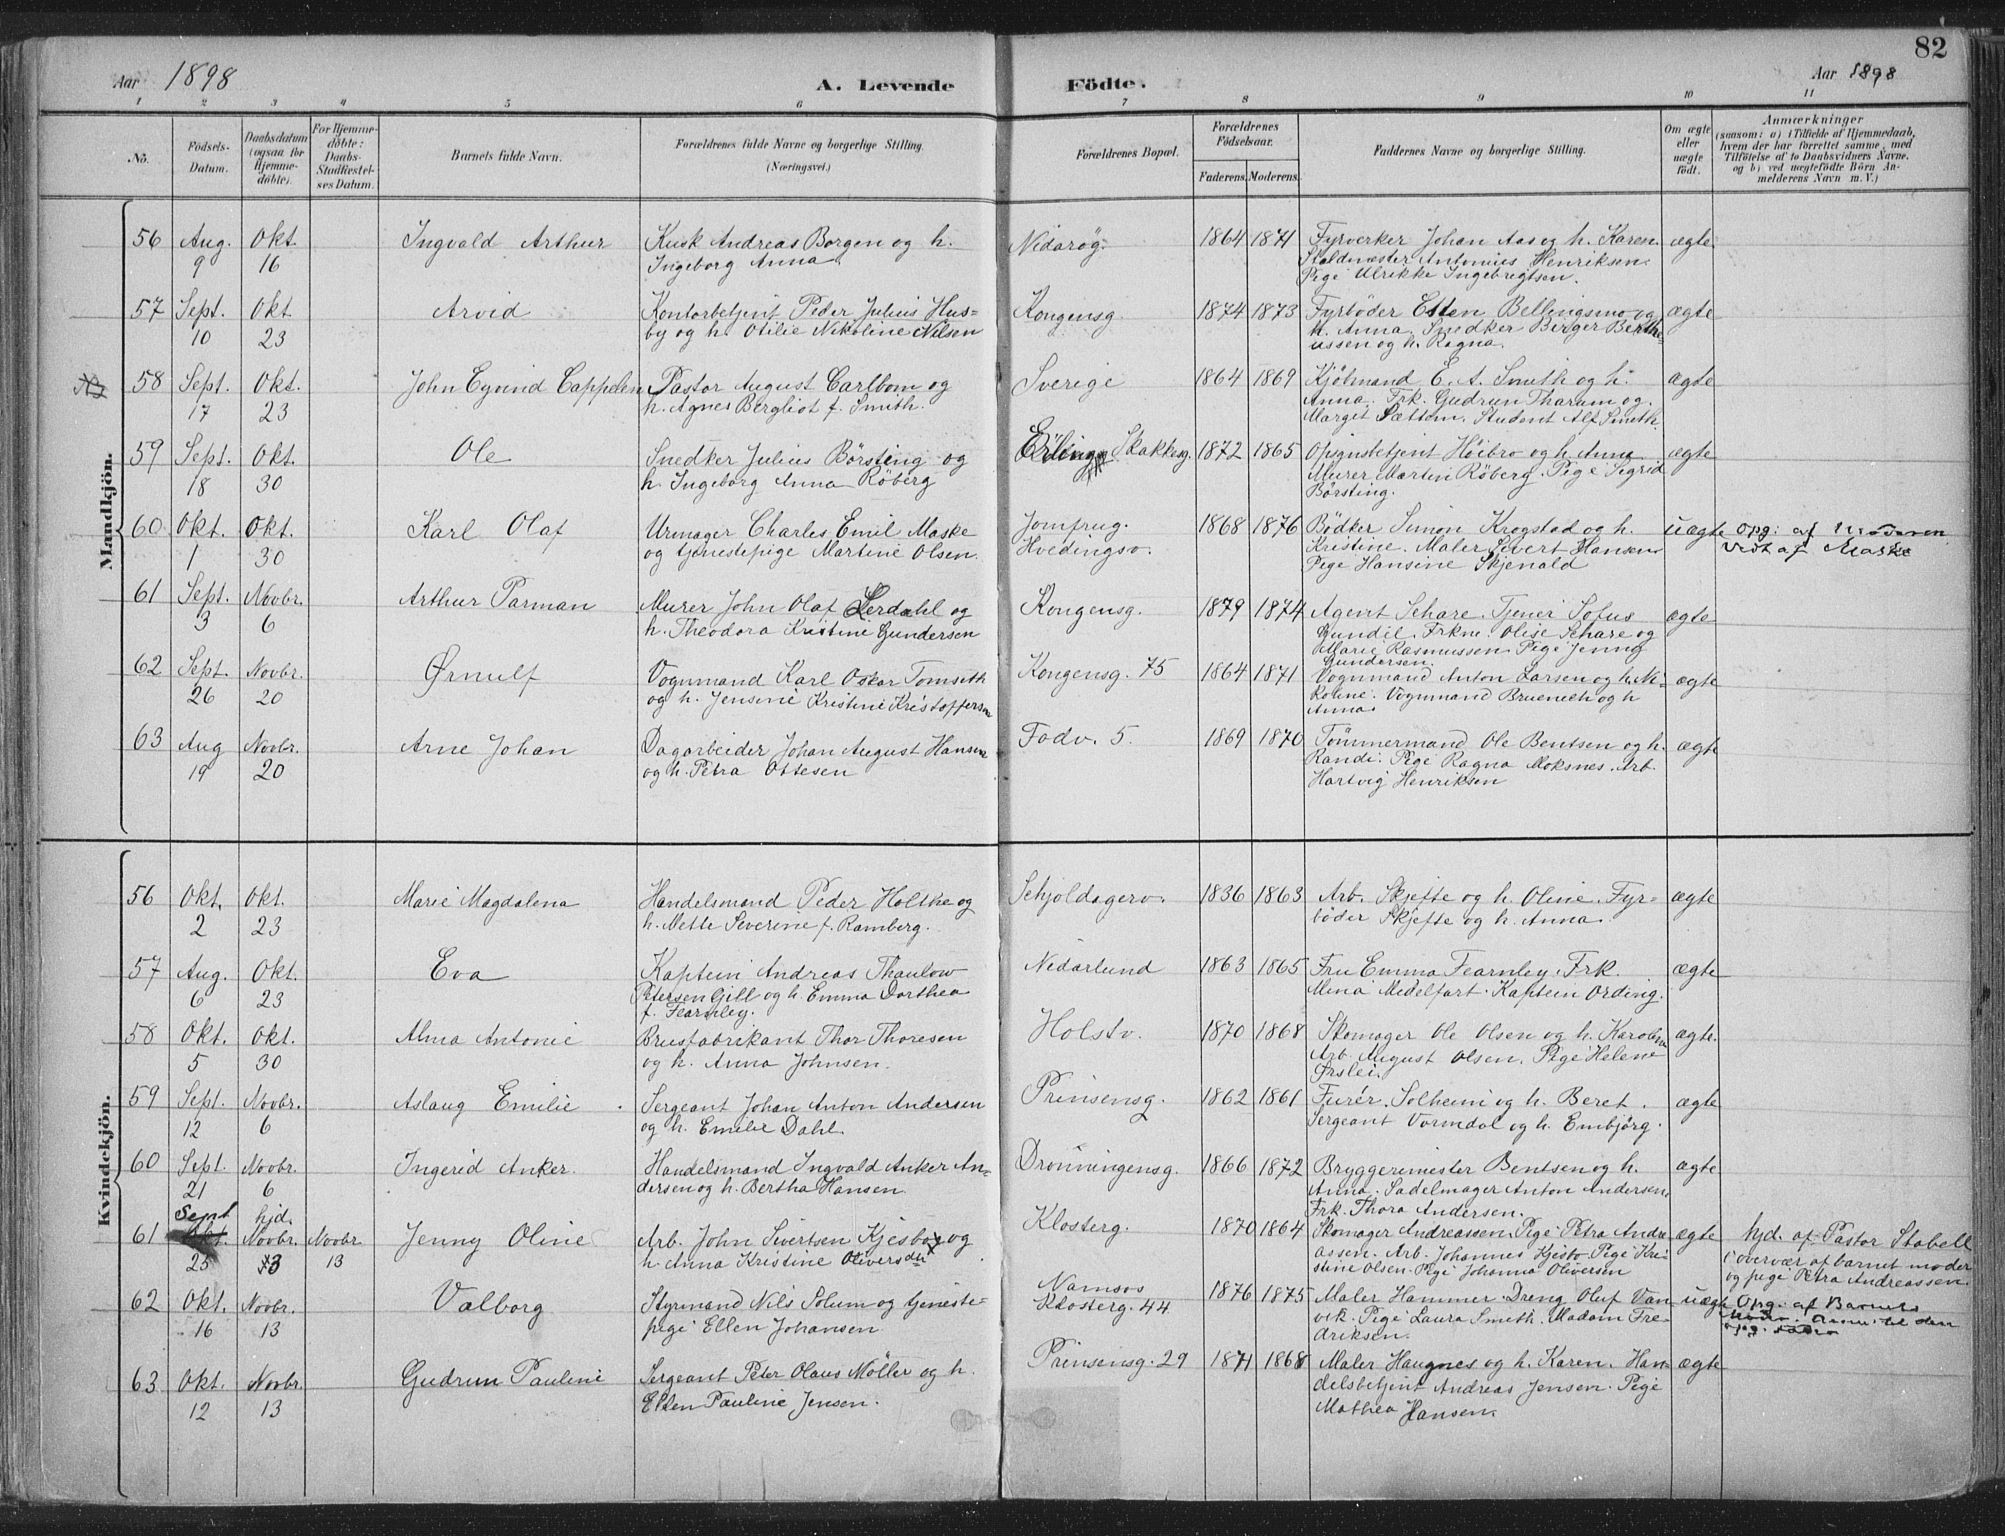 82
Aar 1898
A. Levende Födte.
Aar 1898
1 2 3 4 5 6 7 8 9 10 11
No.
Födsels-Datum.
Daabsdatum (ogsaa for Hjemme-döbte).
For Hjemme-döbte: Daabs-Stadfæstel-ses Datum.
Barnets fulde Navn.
Forældrenes fulde Navne og borgerlige Stilling.
(Næringsvei.)
Forældrenes Bopæl.
Forældrenes Födselsaar.
Faderens. Moderens.
Faddernes Navne og borgerlige Stilling.
Om ægte eller uægte födt.
Anmærkninger
(saasom: a) i Tilfælde af Hjemmedaab,
hvem der har forrettet samme, med
Tilföielse af to Daabsvidners Navne.
og b) ved uægtefödte Börn An-
melderens Navn m. V.)
Mandkjön.
56 Aug. 9 Okt. 16 Ingvald Arthur
Kusk Andreas Borgen og h.
Ingeborg Anna
Nidarøg. 1864 1871
Fyrverker Johan Aas og h. Karen.
Staldmester Antonius Henriksen.
Pige Ulrikke Ingebregtsen.
ægte
57 Sept. 10 Okt 23 Arvid
Kontorbetjent Peder Julius Hus=
by og h. Otilie Nikoline Nilsen
Kongensg. 1874 1873
Fyrbøder Esten Bellingsmo og
h. Anna. Snedker Berger Berthe
ussen og h. Ragna.
ægte
58 Sept. 17 Okt. 23 John Eyvind Cappelen
Pastor August Carlbom og
h. Agnes Bergliot f. Smith.
Sverige 1864 1869
Kjölmand E. A. Smith og h.
Anna. Frk. Gudrun Tharum og
Margit Sættem. Student Alf Smith.
ægte
59 Sept. 18 Okt. 30 Ole
Snedker Julius Börsting og
h. Ingeborg Anna Röberg
Erling Skakkesg. 1872 1865
Opsynsbetjent Höibro og h. Anna
Murer Martin Röberg. Pige Sigrid
Börsting.
ægte
60 Okt. 1 Okt. 30 Karl Olaf
Urmager Charles Emil Maske
og tjenestepige Martine Olsen.
Jomfrug.
Hvedingsv.
1868 1876
Bödker Simon Krogstad og h.
Kristine. Maler Sivert Hansen
Pige Hansine Skjenald
uægte Opg: af Moderen
vedt af Maske
61 Sept. 3 Novbr. 6 Arthur Parman
Murer John Olaf Lerdahl og
h. Theodora Kristine Gundersen
Kongensg. 1879 1874
Agent Schare. Tjener Sofus
Gundil. Frkne. Olise Schare og
Marie Rasmussen Pige Jenny
Gundersen.
ægte
62 Sept. 26 Novbr. 20 Ørnulf
Vognmand Karl Oskar Tomseth
og h. Jensine Kristine Kristoffersen
Kongensg. 75 1864 1871
Vognmand Anton Larsen og h. Ni-
koline. Vognmand Bruenech og h
Anna.
ægte
63 Aug 19 Novbr. 20 Arne Johan
Dagarbeider Johan August Hansen
og h. Petra Ottesen
Fadv. 5. 1869 1870
Tömmermand Ole Bentsen og h.
Randi. Pige Ragna Moksnes. Arb.
Hartvig Henriksen
ægte
Kvindekjön.
56 Okt. 2 Okt. 23 Marie Magdalena
Handelsmand Peder Holthe og
h. Mette Severine f. Ramberg.
Schjoldagerv. 1836 1863
Arb. Skjefte og h. Oline. Fyr=
böder Skjefte og h. Anna.
ægte
57 Aug. 6 Okt. 23 Eva
Kaptein Andreas Thaulow
Petersen Gill og h. Emma Dorthea
f. Fearnley.
Nidarlund 1863 1865
Fru Emma Fearnley. Frk.
Mina Medelfart. Kaptein Ording.
ægte
58 Okt. 5 Okt. 30 Alma Antonie
Brusfabrikant Thor Thoresen
og h. Anna Johnsen.
Holstv. 1870 1868
Skomager Ole Olsen og h. Karoline
Arb. August Olsen. Pige Helene
Ørslei.
ægte.
59 Sept. 12 Novbr. 6 Aslaug Emilie
Sergeant Johan Anton Andersen
og h. Emilie Dahl.
Prinsensg. 1862 1861
Furér. Solheim og h. Beret.
Sergeant Vormdal og h. Embjörg.
ægte
60 Sept. 21 Novbr. 6 Ingerid Anker.
Handelsmand Ingvald Anker An=
dersen og h. Bertha Hansen.
Dronningensg. 1866 1872
Bryggerimester Bentsen og h.
Anna. Sadelmager Anton Andersen.
Frk. Thora Andersen.
ægte
61 Sept 25 hjd. Novbr. 3 Novbr 13 Jenny Oline
Arb. John Sivertsen Kjesbo og
h. Anna Kristine Oliversdtr
Klosterg. 1870 1864
Skomager Andreassen. Pige Petra Andre
assen. Arb. Johannes Kjesbo Pige Kri-
stine Olsen. Pige Johanna Oliversen
ægte hjd. af Pastor Stabell
i overvær af barnet moder
og pige Petra Andreassen.
62 Okt. 16 Novbr. 13 Valborg
Styrmand Nils Solum og tjeneste=
pige Ellen Johansen
Namsos
Klosterg. 44
1876 1875
Maler Hammer. Dreng Oluf Van-
vik. Pige Laura Smith. Madam Fre-
driksen.
uægte Opg. af Barnets
Moder
63 Okt. 12 Novbr. 13 Gudrun Pauline
Sergeant Peter Olaus Möller og h.
Ellen Pauline Jensen.
Prinsensg. 29 1871 1868
Maler Haugnes og h. Karen. Han-
delsbetjent Andreas Jensen. Pige
Mathea Hansen.
ægte